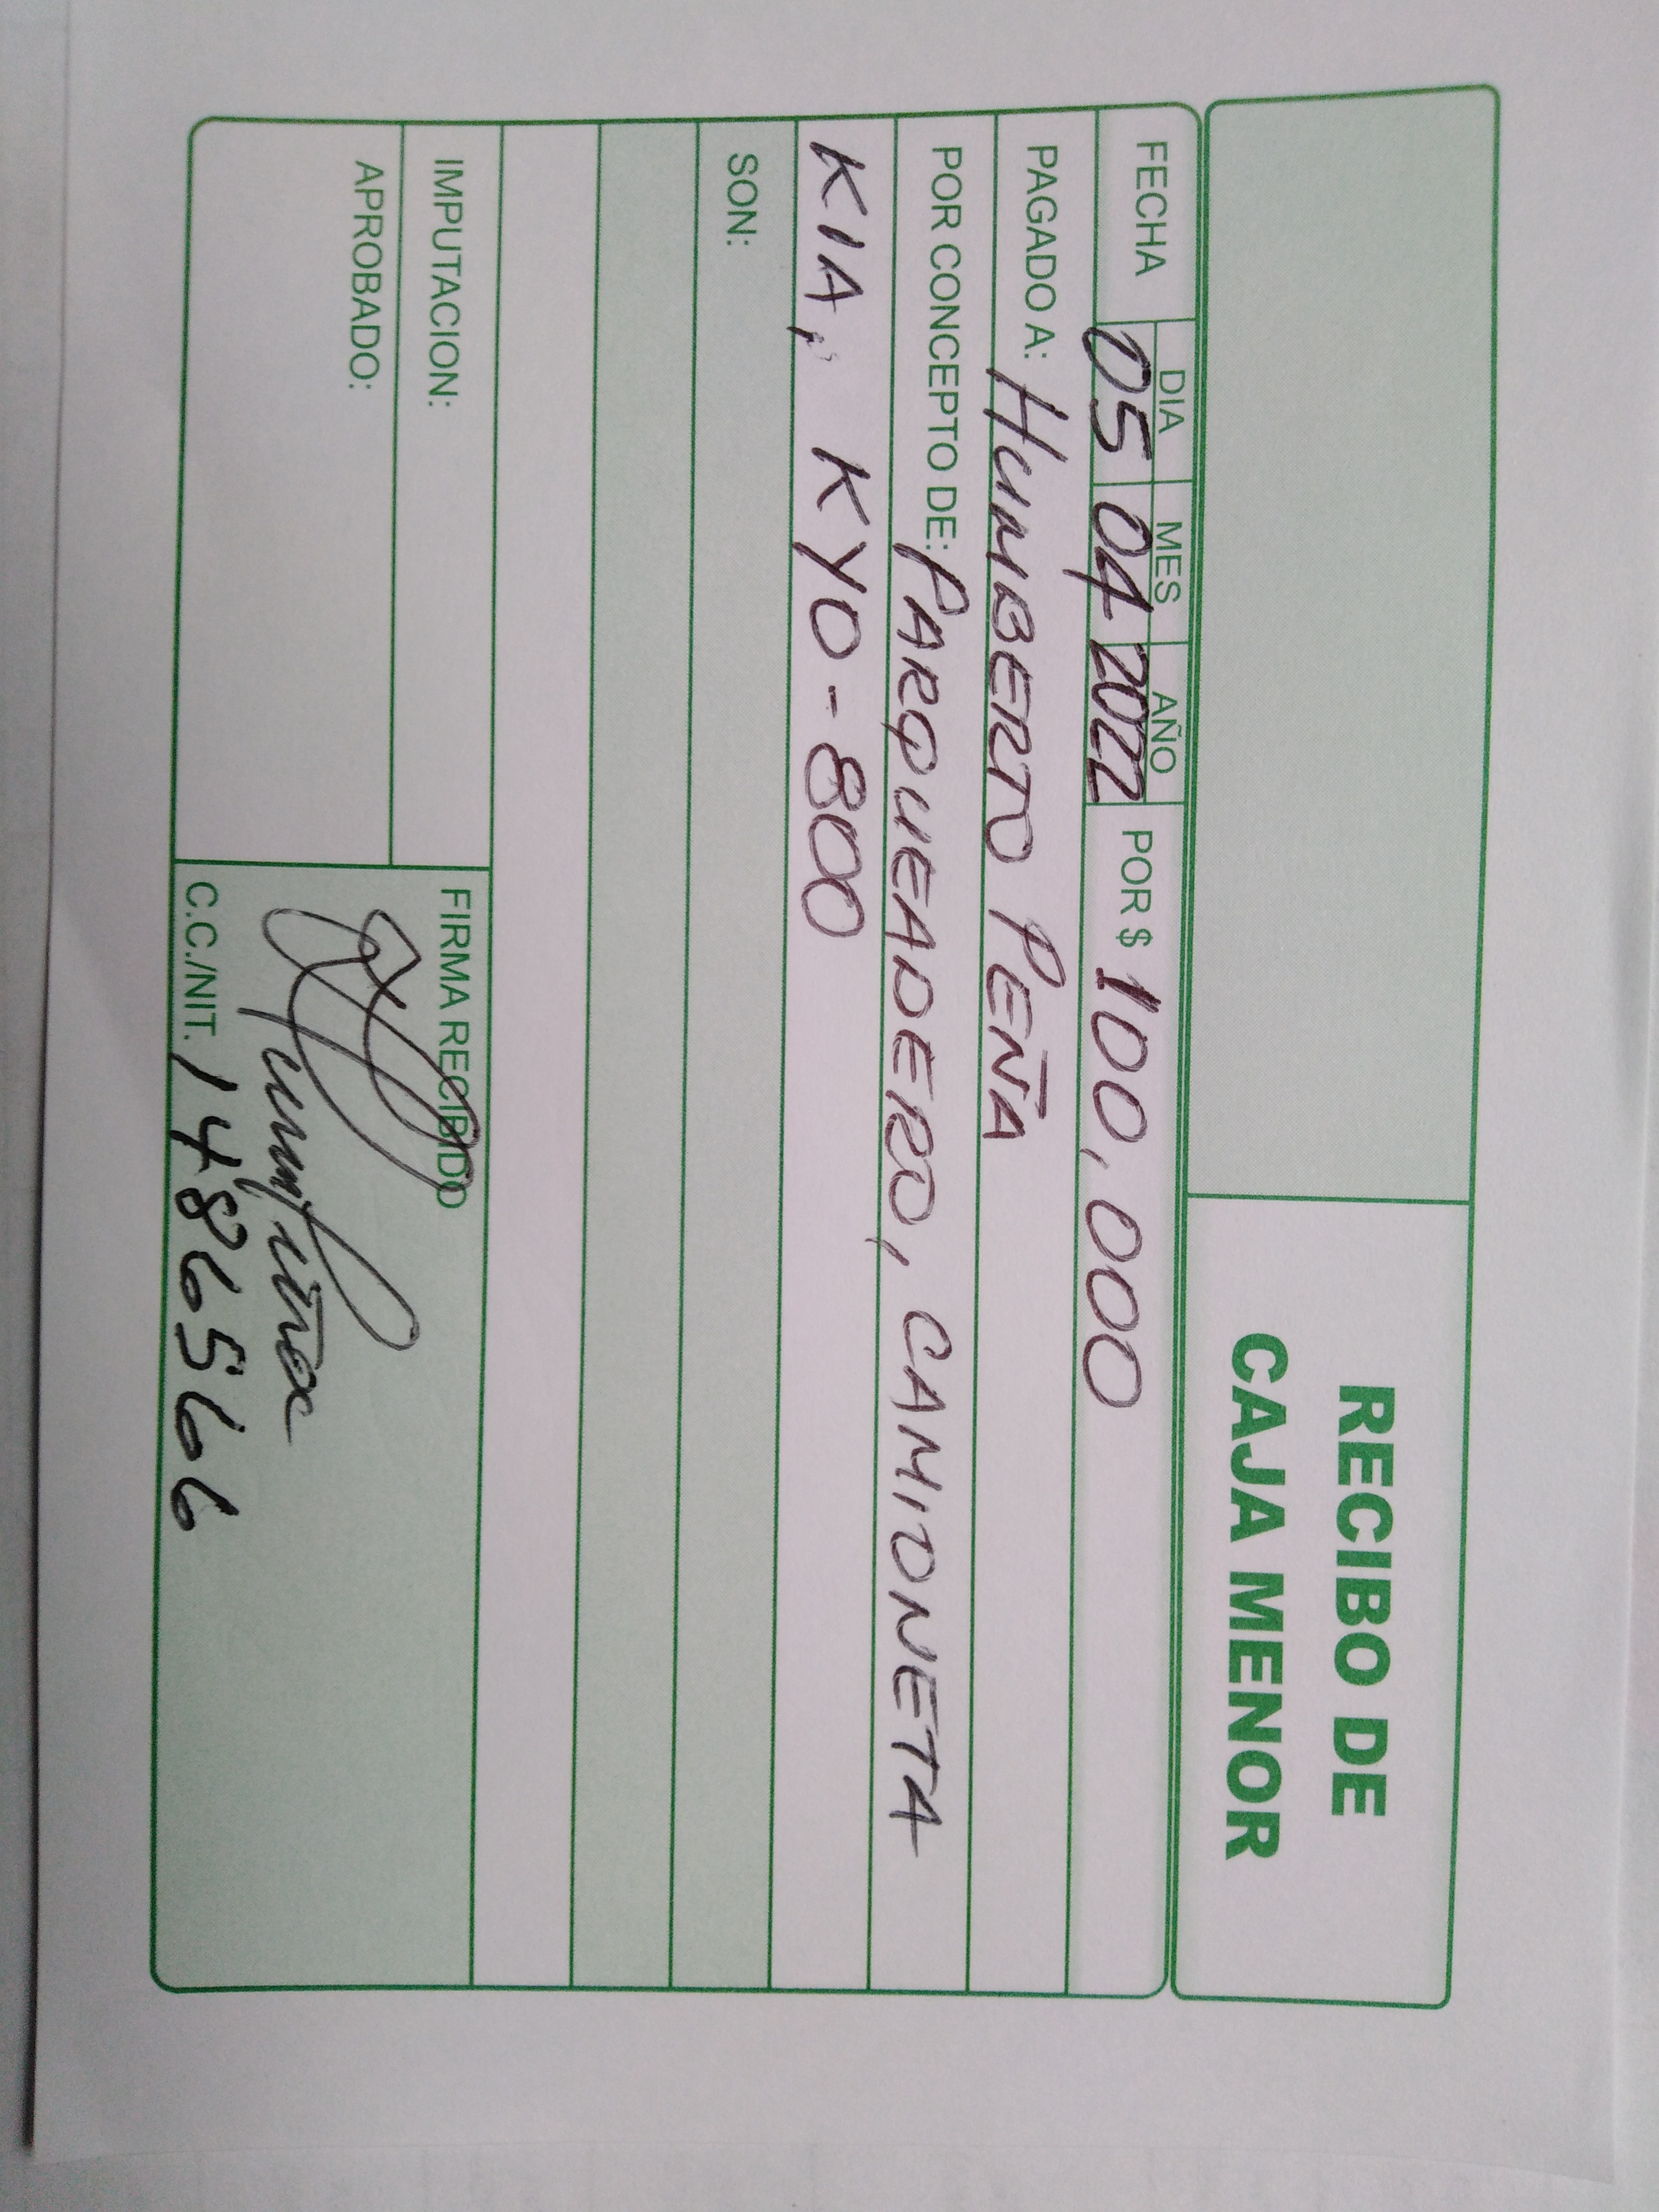 RECIBO DE
CAJA MENOR
FECHA DIA MES AÑO POR $ 100,000
05 04 2022
PAGADO A: HUMBERTO PEÑA
POR CONCEPTO DE: PARQUEADERO, CAMIONETA
KIA, KYO-800
SON:
IMPUTACION:
APROBADO:
FIRMA RECIBIDO
C.C./NIT. 14865666